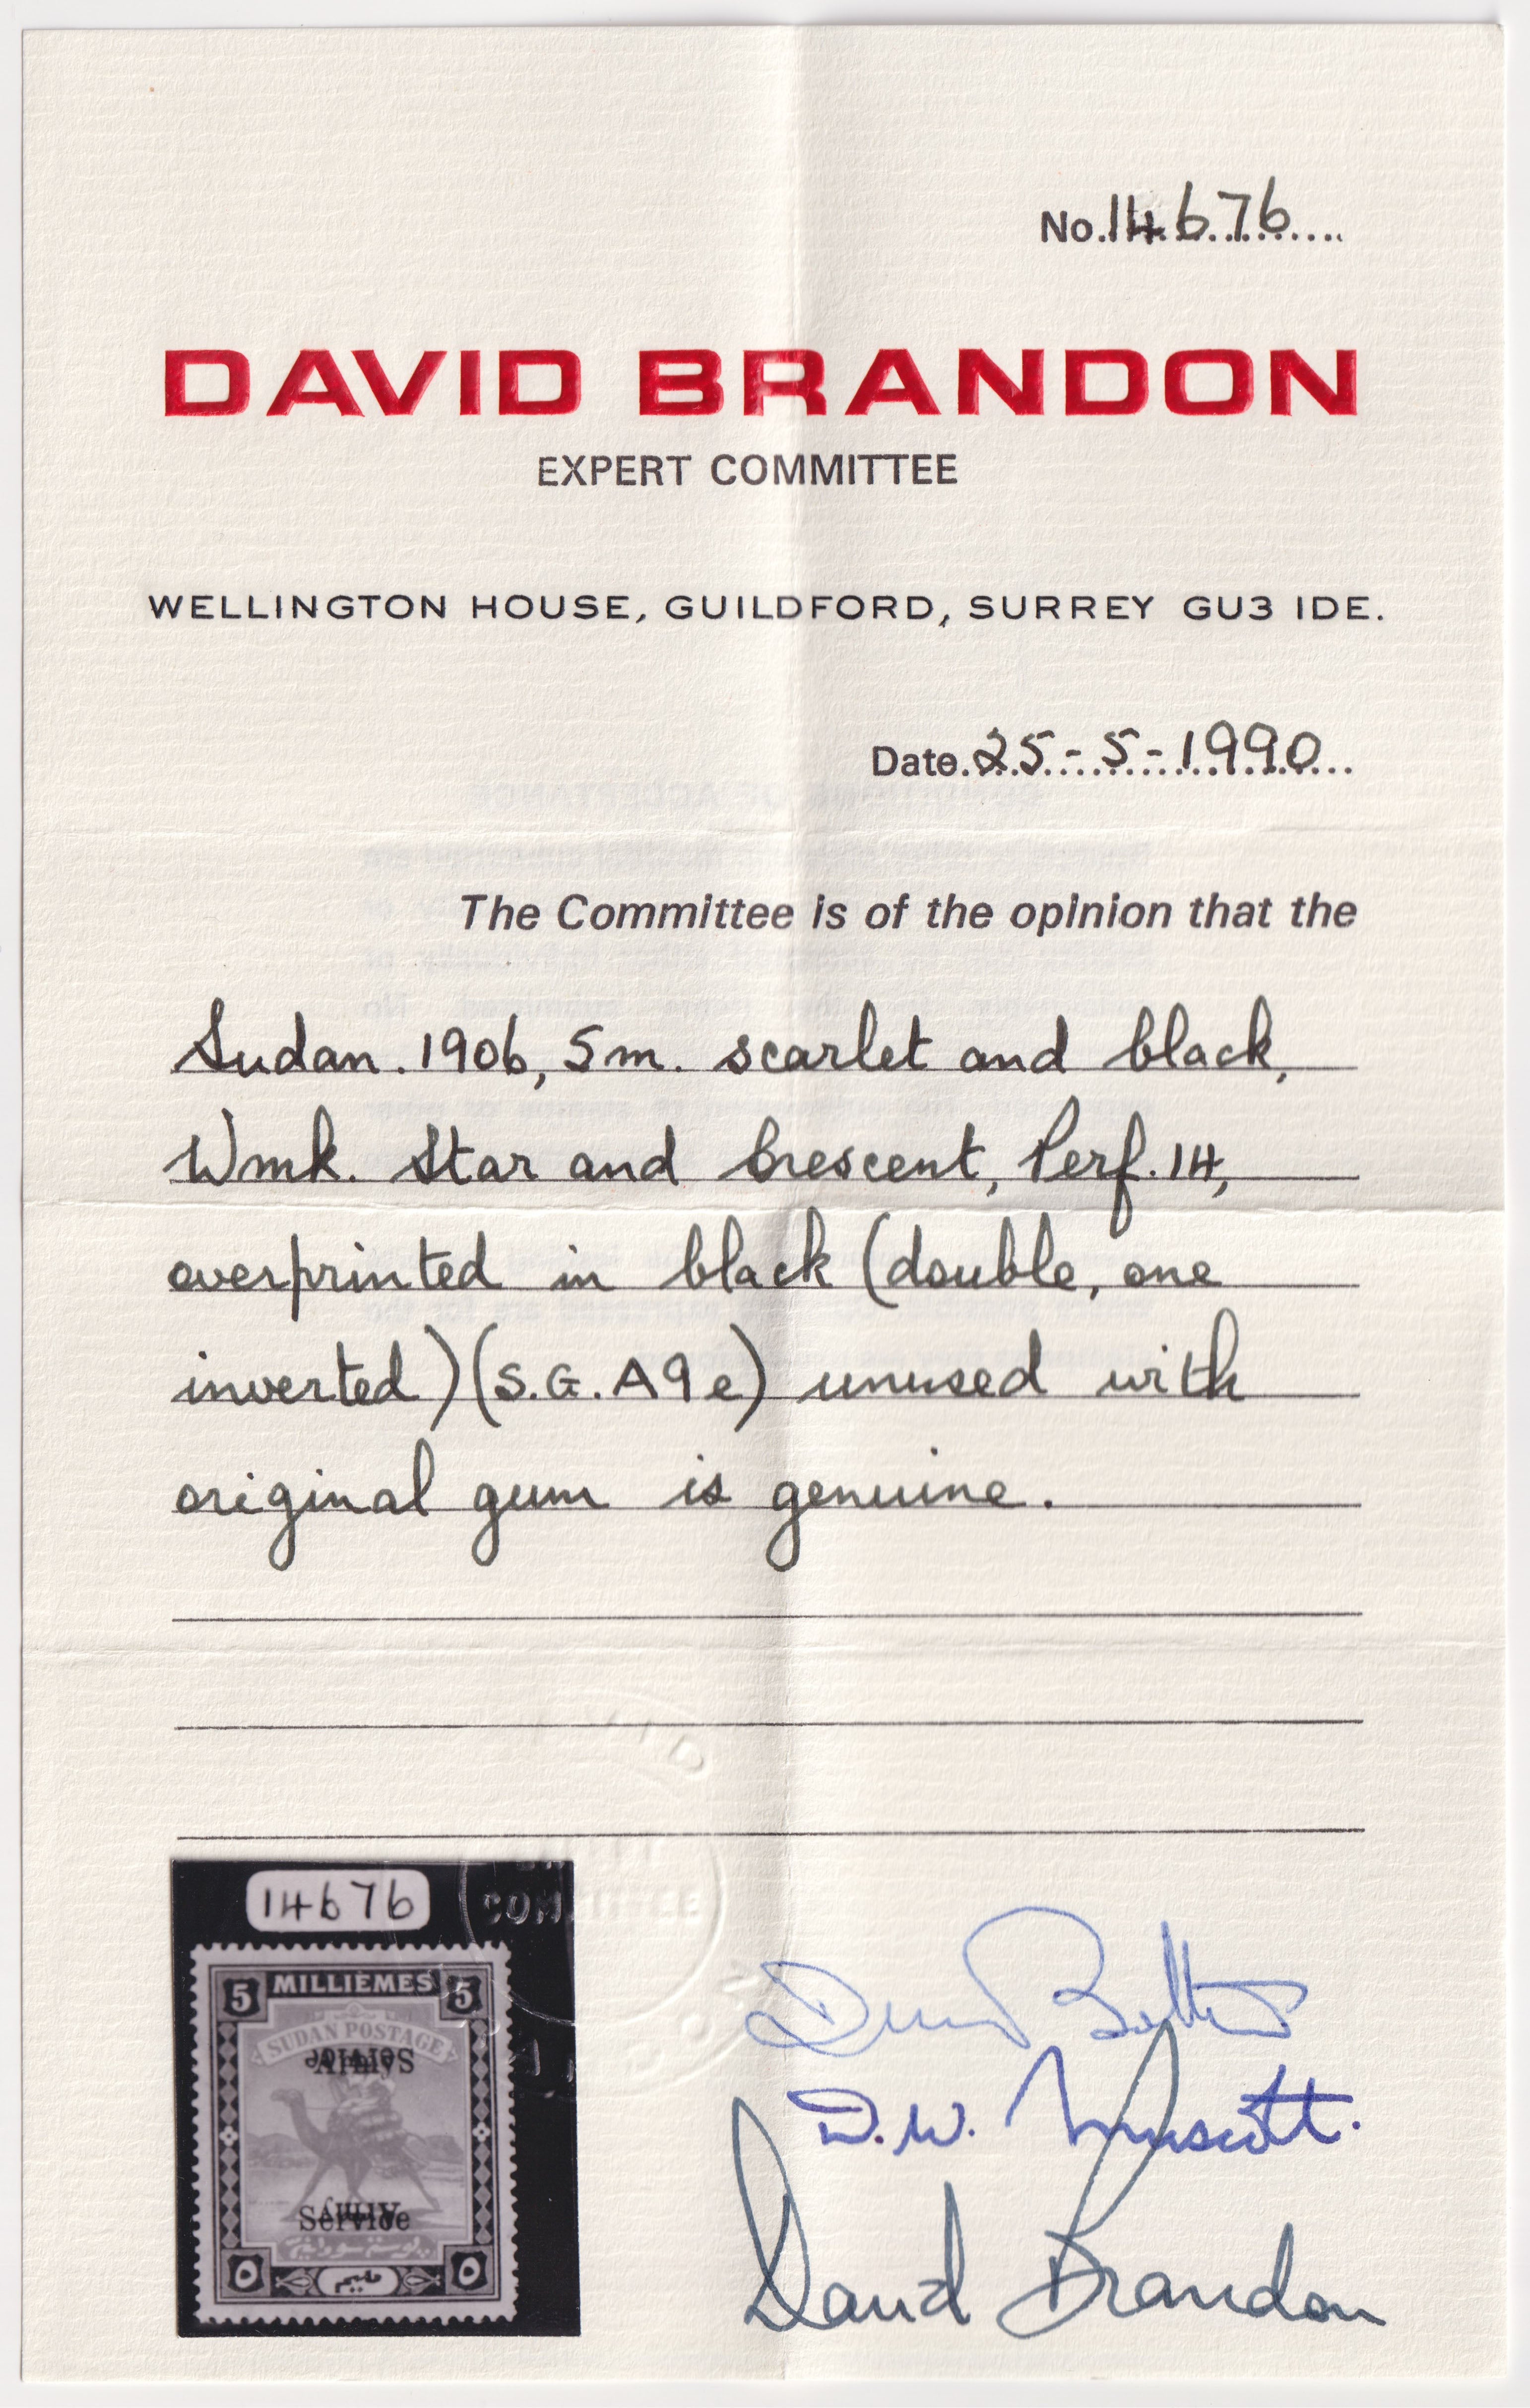 No. 14676
DAVID BRANDON
EXPERT COMMITTEE
WELLINGTON HOUSE, GUILDFORD, SURREY GU3 IDE.
Date. 25-5-1990
The Committee is of the opinion that the
Sudan. 1906, 5m. scarlet and black,
Wmk. Star and Crescent, Perf. 14,
overprinted in black (double, one
inverted) (S.G. A9e) unused with
original gum is genuine.
14676
5 MILLIEMES 5
SUDAN POSTAGE
Army
Service
مليم
COMMITTEE
D.W. Muscott.
David Brandon